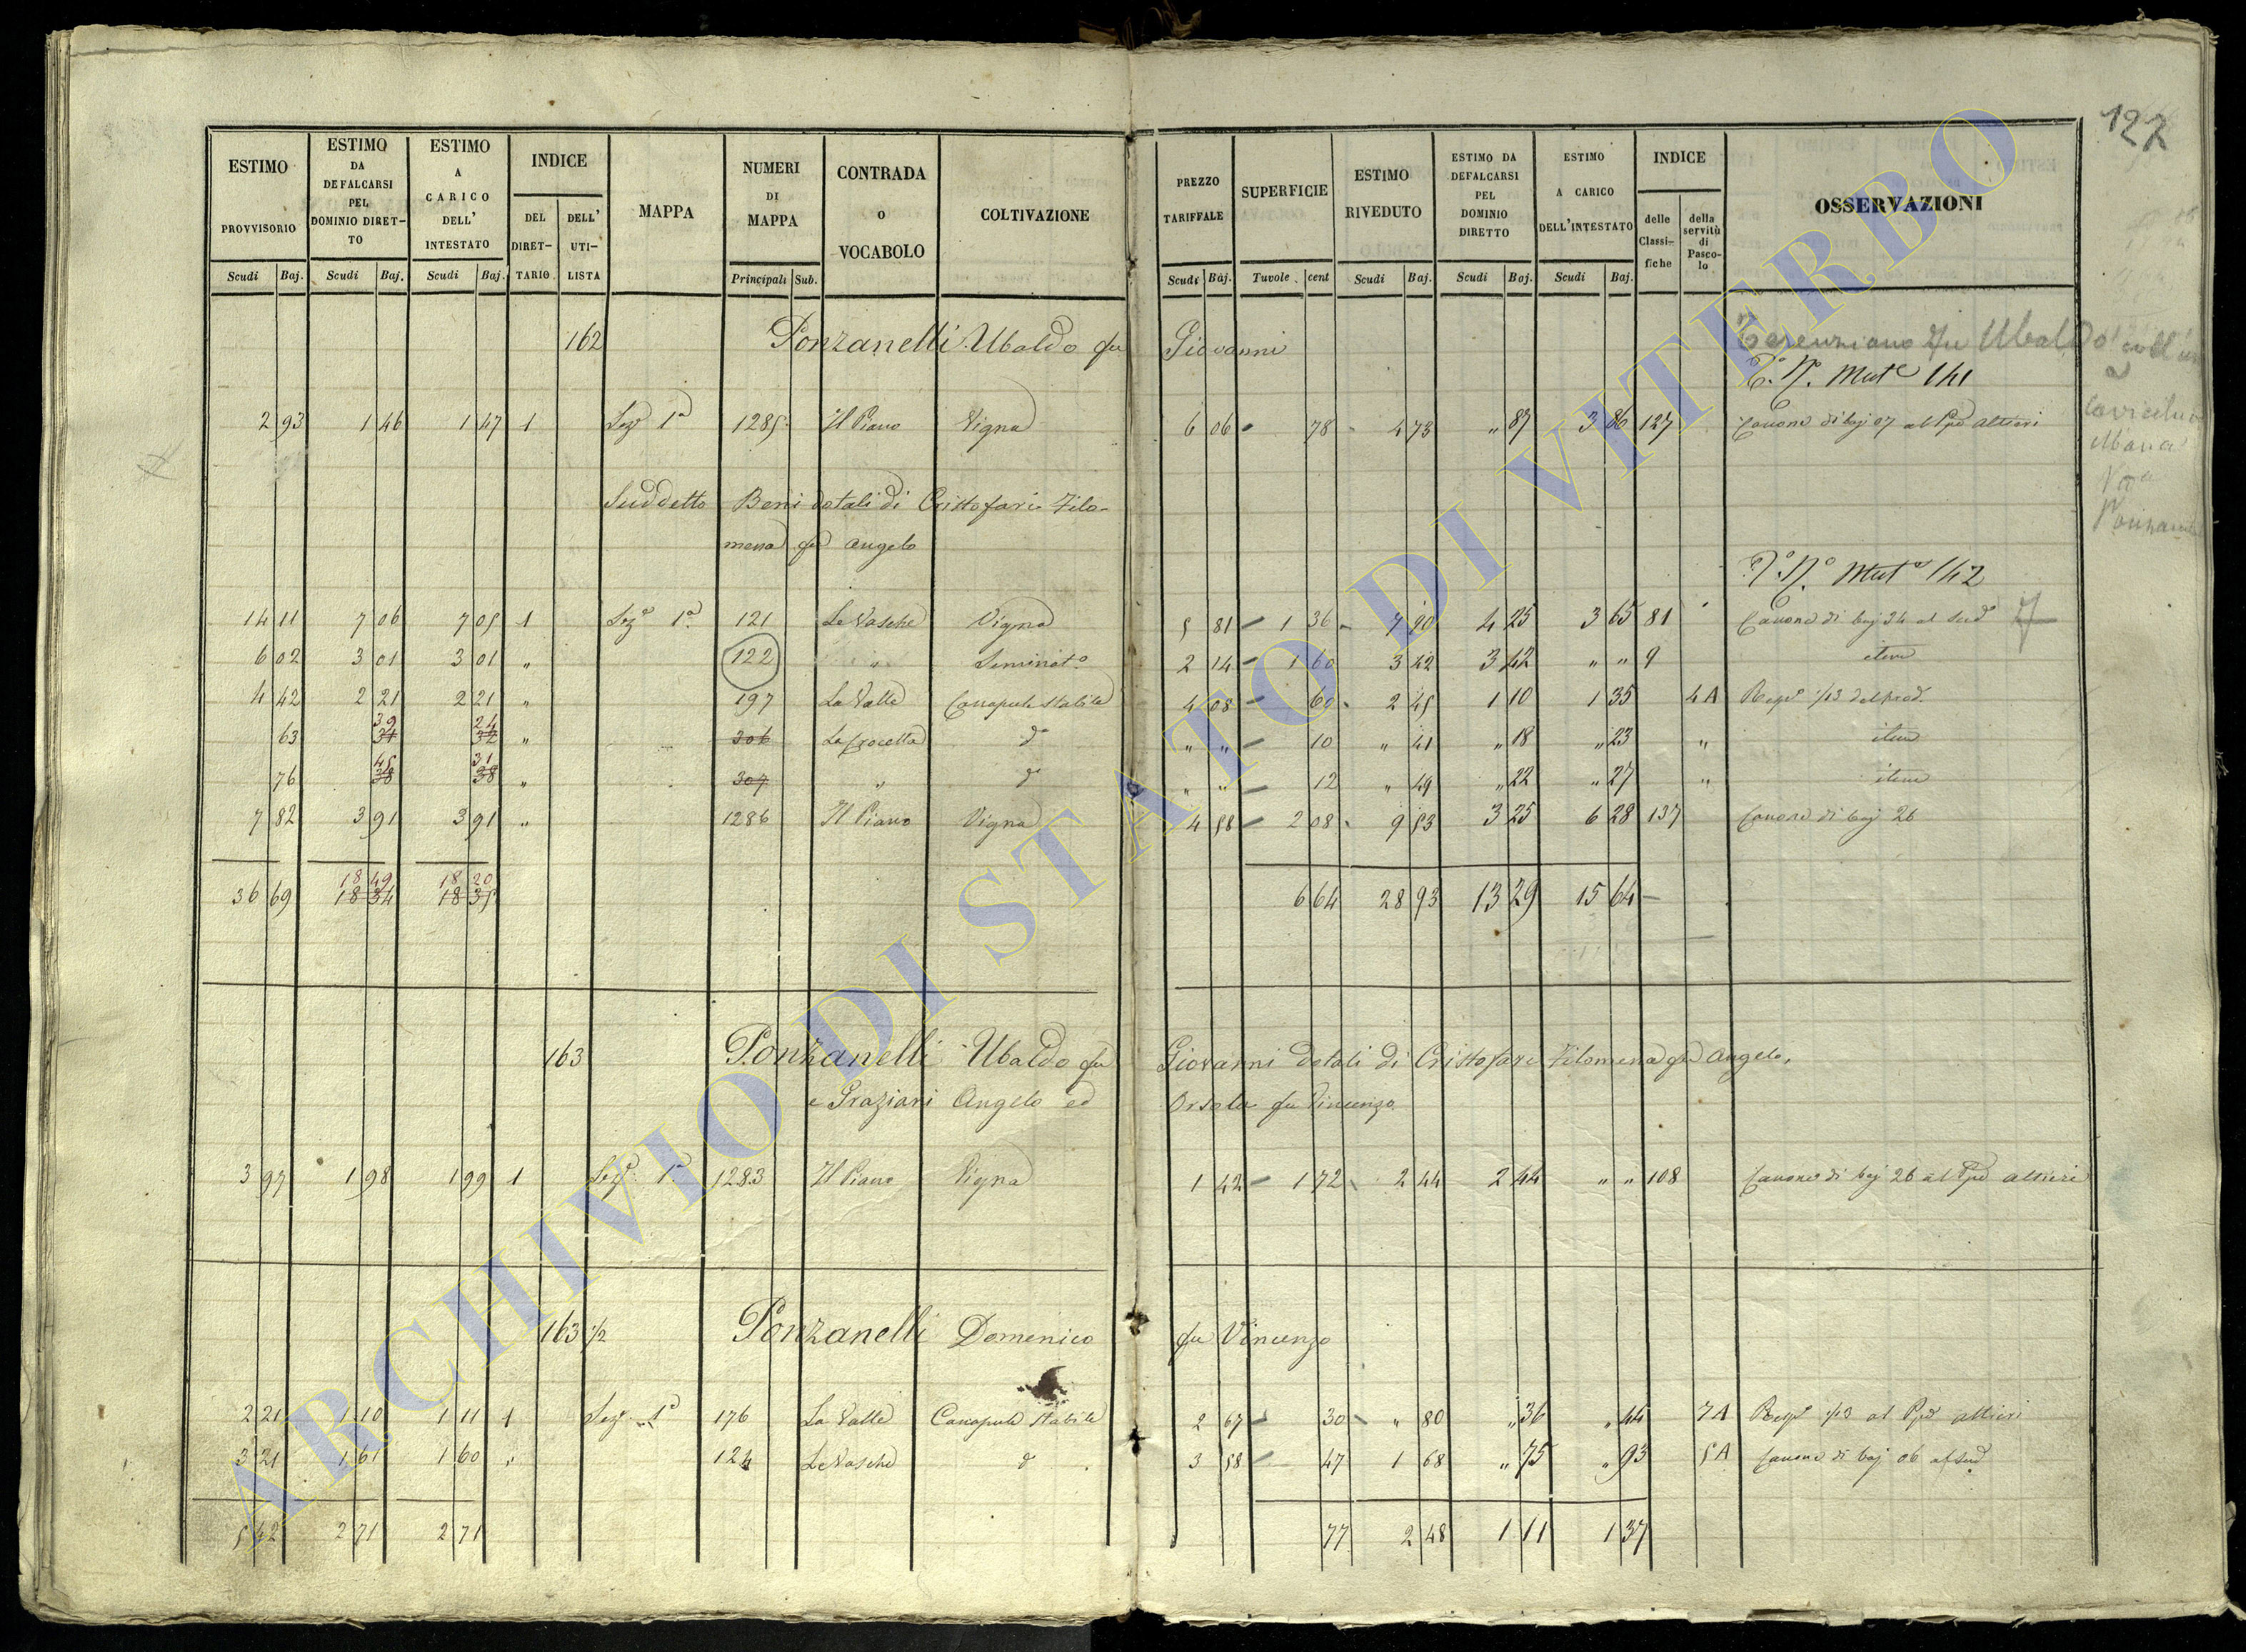 122
ESTIMO PROVVISORIO Scudi Baj. | ESTIMO DA DEFALCARSI PEL DOMINIO DIRETTO Scudi Baj. | ESTIMO A CARICO DELL' INTESTATO Scudi Baj. | INDICE DEL DIRETTARIO | DELL' UTILISTA | MAPPA | NUMERI DI MAPPA Principali Sub. | CONTRADA O VOCABOLO | COLTIVAZIONE | PREZZO TARIFFALE Scudi Baj. | SUPERFICIE Tavole cent | ESTIMO RIVEDUTO Scudi Baj. | ESTIMO DA DEFALCARSI PEL DOMINIO DIRETTO Scudi Baj. | ESTIMO A CARICO DELL'INTESTATO Scudi Baj. | INDICE delle Classifiche | della servitù di Pascolo | OSSERVAZIONI
162 Ponzanelli Ubaldo fu Giovanni
Terenziano fu Ubaldo
Mut 141
2 93 1 46 1 47 1 Sez 1a 1285 Il Piano Vigna 6 06 78 4 73 " 87 3 86 127 Canone di baj 07 al Ppe Altieri
Maria
Suddetto Beni dotali di Cristofari Filo-
mena fu Angelo
Mut 142
14 11 7 06 7 05 1 Sez 1a 121 Le Vasche Vigna 5 81 1 36 7 90 4 25 3 65 81 Canone di baj 34 al Sud
6 02 3 01 3 01 " 122 " Seminato 2 14 1 60 3 42 3 42 " " 9 item
4 42 2 21 2 21 " 197 La Valle Canapule stabile 4 08 60 2 45 1 10 1 35 4A Rispa 1/13 del prod.
63 39 31 24 32 " 306 La Crocetta do " " 10 " 41 " 18 " 23 " item
76 45 38 31 38 " 307 " do " " 12 " 49 " 22 " 27 " item
7 82 3 91 3 91 " 1286 Il Piano Vigna 4 58 2 08 9 53 3 25 6 28 137 Canone di baj 26
18 49 18 20
36 69 18 34 18 35 6 64 28 93 13 29 15 64
163 Ponzanelli Ubaldo fu Giovanni dotali di Cristofari Filomena fu Angelo,
e Graziani Angelo ed Orsola fu Vincenzo
3 97 1 98 1 99 1 Sez 1a 1283 Il Piano Vigna 1 42 1 72 2 44 2 44 " " 108 Canone di baj 26 al Ppe Altieri
163 1/2 Ponzanelli Domenico fu Vincenzo
2 21 1 10 1 11 1 Sez 1a 176 La Valle Canapule stabile 2 67 30 " 80 " 36 " 44 7A Rispa 1/13 al Ppe Altieri
3 21 1 61 1 60 " 124 Le Vasche do 3 58 47 1 68 " 75 " 93 5A Canone di baj 06 al Sud
5 42 2 71 2 71 77 2 48 1 11 1 37
ARCHIVIO DI STATO DI VITERBO